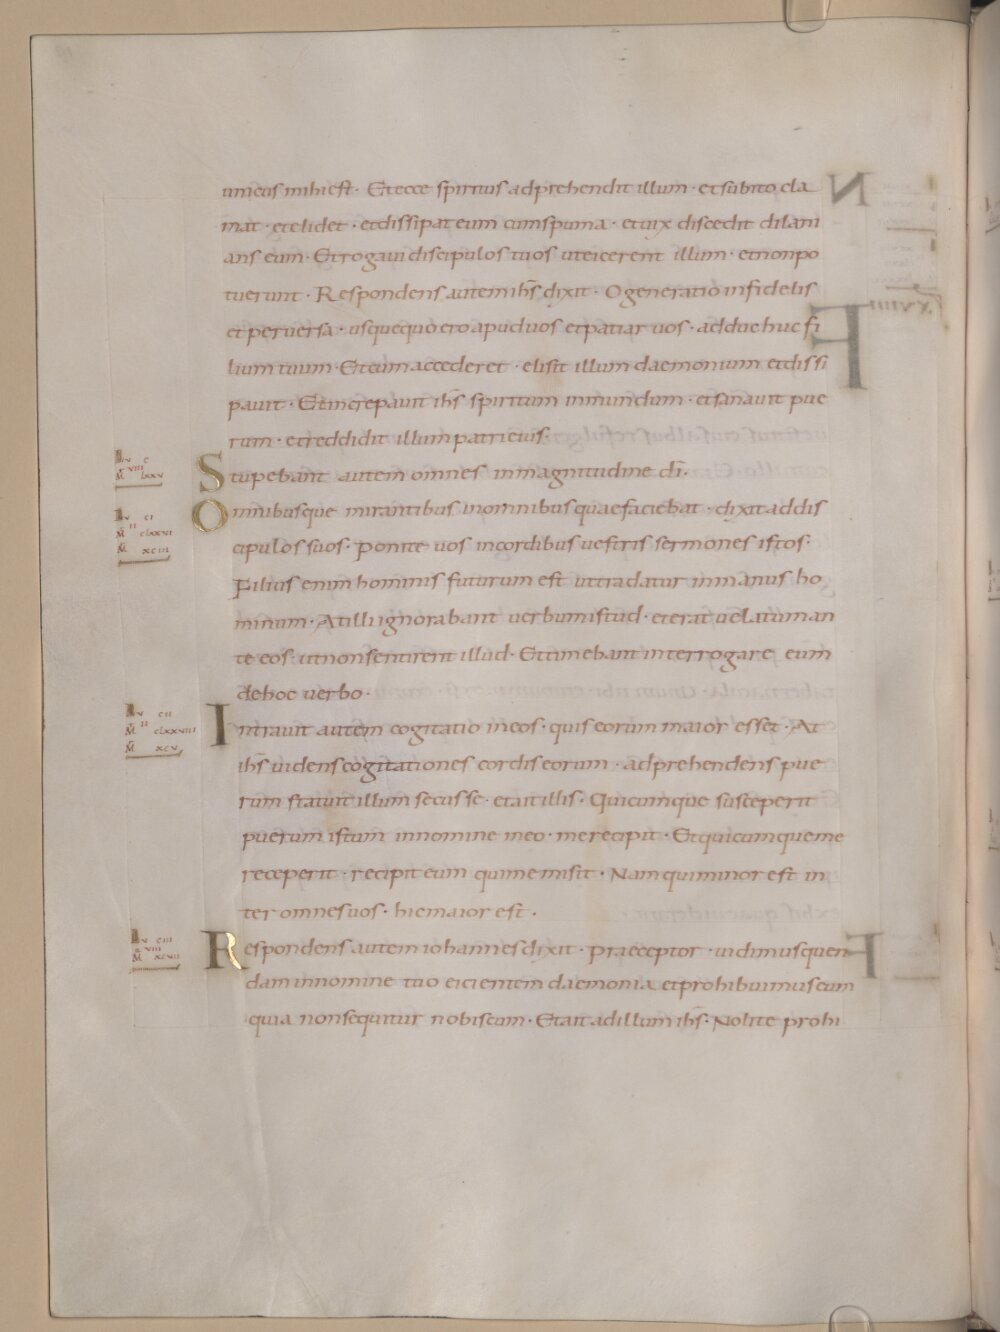 unicus mihi est · Et ecce spiritus adprehendit illum · et subito cla
mat · et elidet · et dissipat eum cum spuma · et uix discedit dilani
ans eum · Et rogaui discipulos tuos ut eicerent illum · et non po
tuerunt · Respondens autem ihs dixit · O generatio infidelis
et peruersa · usquequo ero apud uos et patiar uos · adduc huc fi
lium tuum · Et cum accederet · elisit illum daemonium et dissi
pauit · Et increpauit ihs spiritum inmundum · et sanauit pue
rum · et reddidit illum patri eius ·
In c
Stupebant autem omnes in magnitudine di ·
In ci
Omnibusque mirantibus in omnibus quae faciebat · dixit ad dis
M clxxvi
cipulos suos · ponite uos in cordibus uestris sermones istos ·
M xciii
Filius enim hominis futurum est ut tradatur in manus ho
minum · At illi ignorabant uerbum istud · et erat uelatum an
te eos · ut non sentirent illud · Et timebant interrogare eum
de hoc uerbo ·
In cii
Intrauit autem cogitatio in eos · quis eorum maior esset · At
M clxxviiii
M xcv
ihs uidens cogitationes cordis eorum · adprehendens pue
rum statuit illum secus se · et ait illis · Quicumque susceperit
puerum istum in nomine meo · me recipit · Et quicumque me
receperit · recipit eum qui me misit · Nam qui minor est in
ter omnes uos · hic maior est ·
In ciii
Respondens autem iohannes dixit · praeceptor · uidimus quen
viii
M xcvii
dam in nomine tuo eicientem daemonia et prohibuimus eum
quia non sequitur nobiscum · Et ait ad illum ihs · Nolite prohi